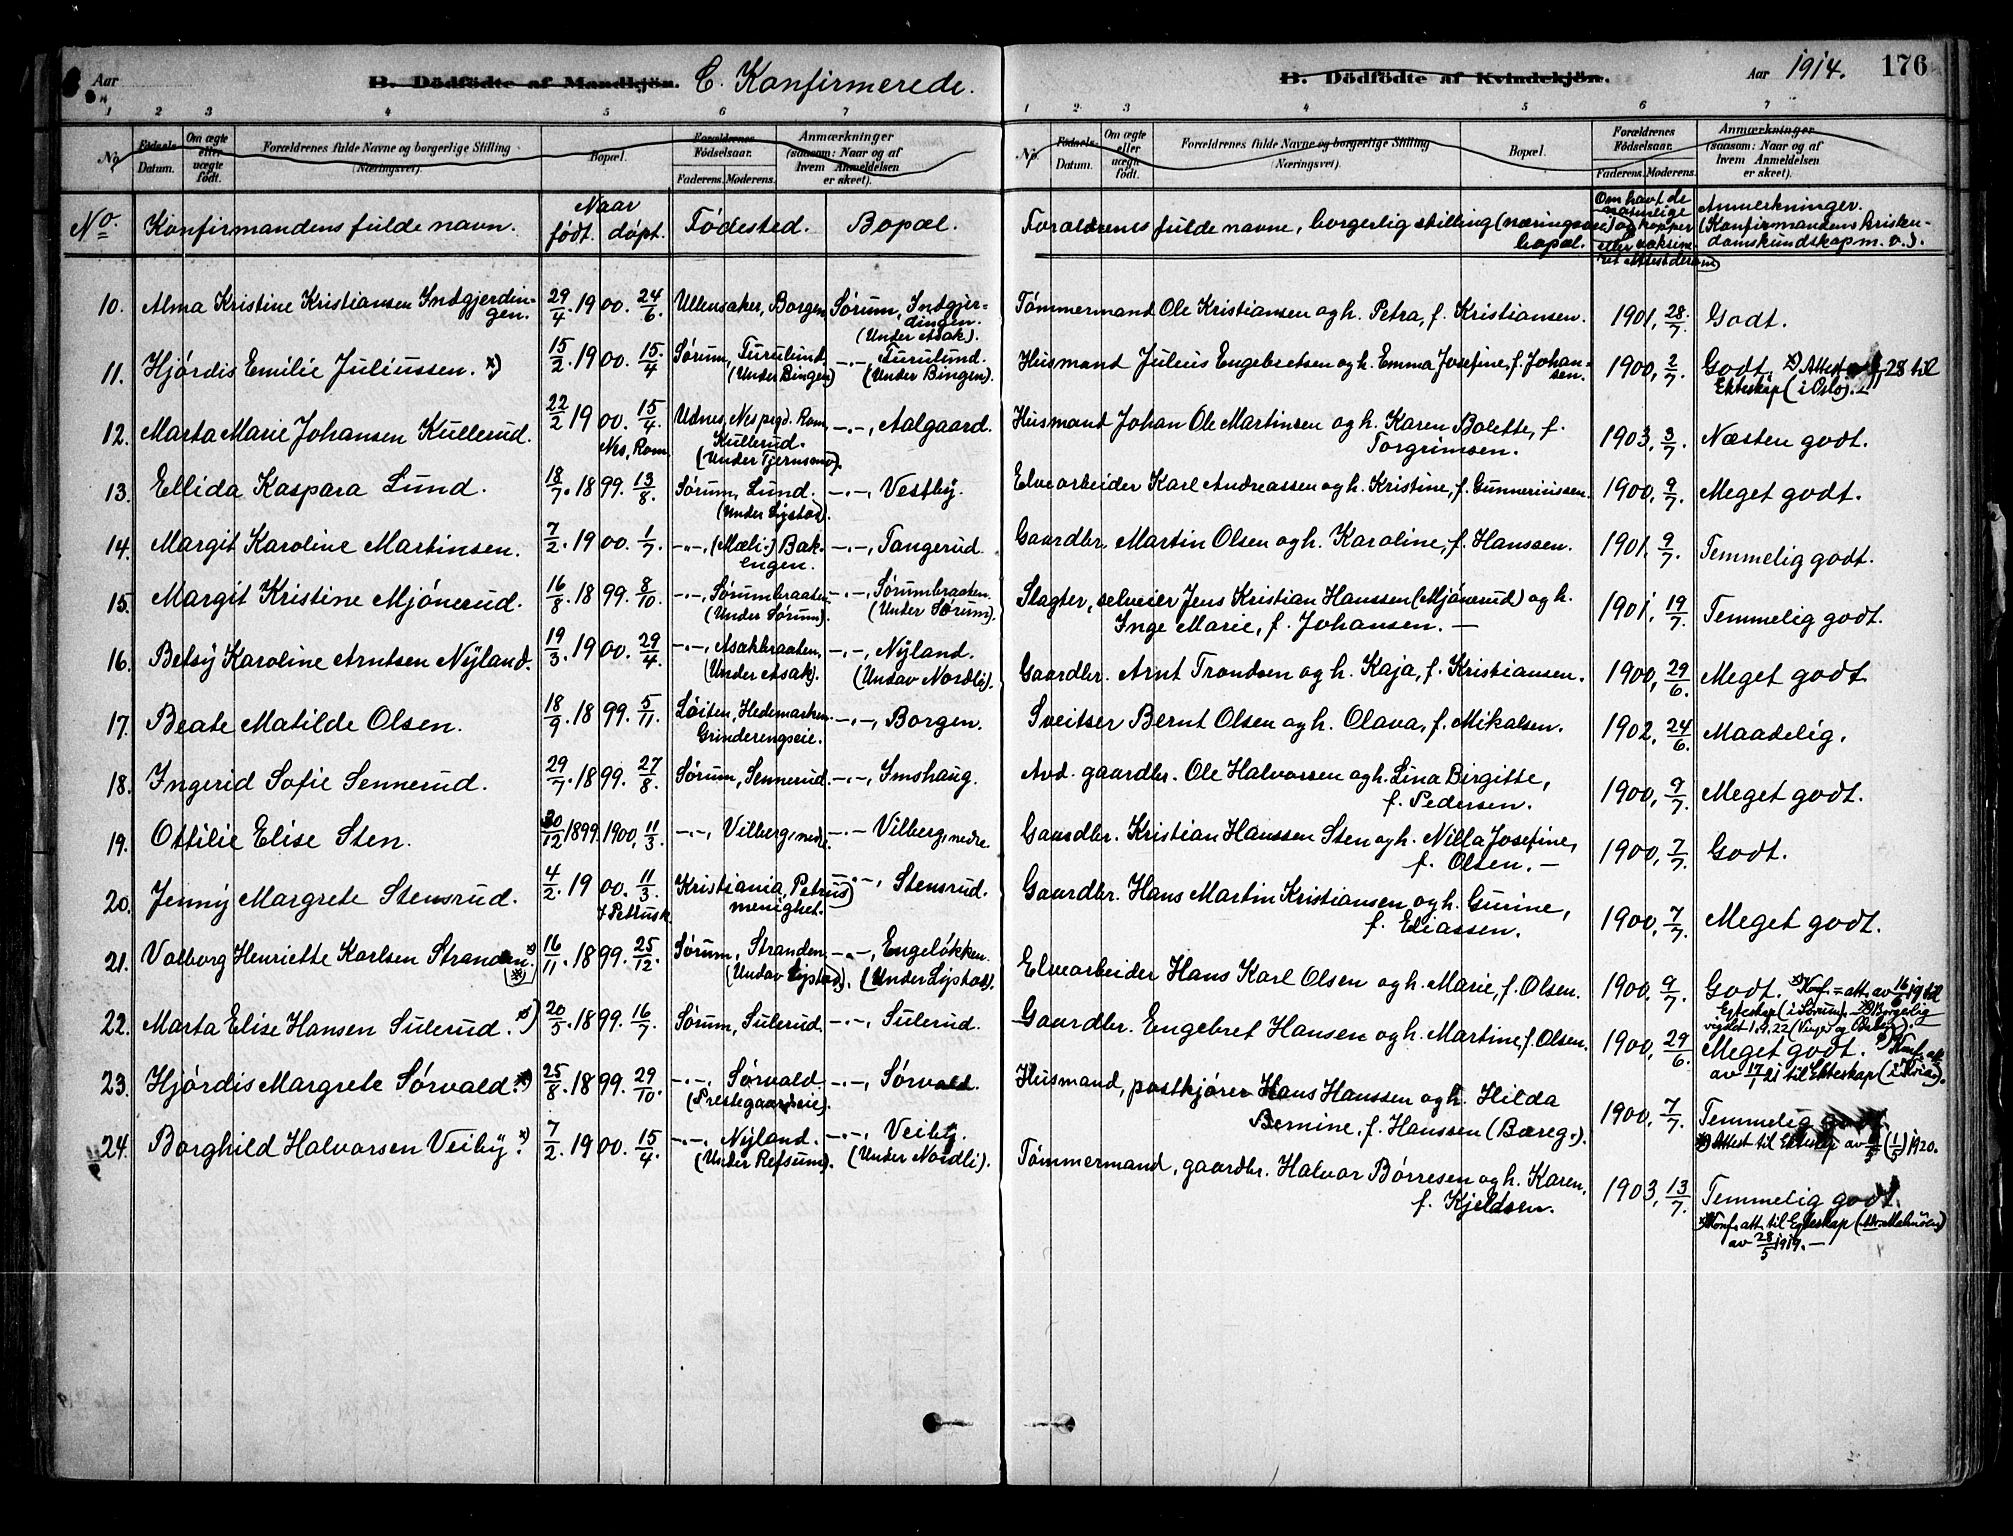 Aar
B. Dödfödte af Mandkjön. C. Konfirmerede.
B. Dödfödte af Kvindekjön.
Aar 1914. 176
1 2 3 4 5 6 7
1 2 3 4 5 6 7
No. Fødsels-Datum. Om ægte eller uægte født. Forældrenes fulde Navne og borgerlige Stilling (Næringsvei). Bopæl. Forældrenes Fødselsaar. Faderens. Moderens. Anmærkninger (saasom: Naar og af hvem Anmeldelsen er skeet).
No. Fødsels-Datum. Om ægte eller uægte født. Forældrenes fulde Navne og borgerlige Stilling (Næringsvei). Bopæl. Forældrenes Fødselsaar. Faderens. Moderens. Anmærkninger (saasom: Naar og af hvem Anmeldelsen er skeet).
No. Konfirmandens fulde navn. Naar født. døpt. Fødested. Bopæl. Forældrenes fulde navne, borgerlig stilling (næringsvei) og bopæl. Om havt de naturlige kopper eller vaksineret Attest derom Anmerkninger. (Konfirmandens kristendomskundskap m.v.).
10. Alma Kristine Kristiansen Indgjerdingen. 29/4. 1900. 24/6. Ullensaker, Borgen Sørum, Indgjerdingen. (Under Asak). Tømmermand Ole Kristiansen og h. Petra, f. Kristiansen. 1901, 28/7. Godt.
11. Hjørdis Emilie Juliussen. x) 15/2. 1900. 15/4 Sørum, Furulund, (Under Bingen) -"-, Furulund. (Under Bingen). Husmand Julius Engebretsen og h. Emma Josefine, f. Johansen. 1900, 2/7. Godt. x) Attest 28 til Ekteskap (i Oslo).
12. Marta Marie Johansen Kullerud. 22/2 1900. 15/4. Nes, Rom. Udnes, Nes prgd. Rom, Kullerud. (Under Tjernsmo). -"-, Aalgaard. Husmand Johan Ole Martinsen og h. Karen Bolette, f. Torgrimsen. 1903, 3/7. Næsten godt.
13. Ellida Kaspara Lund. 18/7. 1899. 13/8. Sørum, Lund. (Under Lystad). -"-, Vestby. Elvearbeider Karl Andreassen og h. Kristine, f. Gunneriussen. 1900, 9/7. Meget godt.
14. Margit Karoline Martinsen. 7/2. 1900. 1/7. -"-, (Mæli-) Bakengen. -"-, Tangerud. Gaardbr. Martin Olsen og h. Karoline, f. Hanssen. 1901. 9/7. Temmelig godt.
15. Margit Kristine Mjønerud. 16/8. 1899. 8/10. -"-, Sørumbraaten. (Under Sørum). -"-, Sørumbraaten. (Under Sørum). Slagter, selveier Jens Kristian Hanssen (Mjönerud) og h. Inge Marie, f. Johansen. — 1901, 19/7. Temmelig godt.
16. Betsy Karoline Arntsen Nyland. 19/3. 1900. 29/4. -"-, Asakbraaten, (Under Asak). -"-, Nyland. (Undav Nordli). Gaardbr. Arnt Trondsen og h. Kaja, f. Kristiansen. 1900, 29/6. Meget godt
17. Beate Matilde Olsen. 18/9. 1899. 5/11. Løiten, Hedemarken. Grinderengseie. -"-, Borgen. Sveitser Bernt Olsen og h. Olava, f. Mikalsen. 1902, 24/6. Maadelig.
18. Ingerid Sofie Sennerud. 29/7. 1899. 27/8. Sørum, Sennerud. -"-, Imshaug. Avd. gaardbr. Ole Halvorsen og h. Lina Birgitte, f. Pedersen. 1900, 9/7. Meget godt.
19. Ottilie Elise Sten. 30/12 1899. 1900, 11/3. -"-, Vilberg, nedre. -"- Vilberg, nedre. Gaardbr. Kristian Hanssen Sten og h. Nilla Josefine, f. Olsen. — 1900, 7/7. Godt.
20. Jenny Margrete Stensrud. 4/2. 1900. 11/3. I Petrusk Kristiania, Petrus menighet. -"-, Stensrud. Gaardbr. Hans Martin Kristiansen og h. Gurine, f. Eliassen. 1900, 7/7. Meget godt.
21. Valborg Henriette Karlsen Stranden. x) 16/11. 1899. 25/12. Sørum, Stranden (Undav Lystad). -"-, Engeløkken. (Under Lystad). Elvearbeider Hans Karl Olsen og h. Marie, f. Olsen. 1900, 9/7. Godt. x) Konf.=att. av 16/6 19 til Egteskap (i Sørum). Borgerlig viglet 1.4.22
22. Marta Elise Hansen Sulerud. x) 20/5. 1899. 16/7. Sørum, Sulerud. -"-, Sulerud. Gaardbr. Engebret Hansen og h. Martine, f. Olsen. 1900, 29/6. Meget godt. x) Konf. att. av 17/1 21 til Ekteskap (i Kria).
23. Hjördis Margrete Sørvald. x) 25/8. 1899. 29/10. -"-, Sørvald (Prestegaardseie). -"-, Sørvald. Husmand, postkjører Hans Hanssen og h. Hilda Bernine, f. Hanssen (Bæreg.). 1900, 7/7. Temmelig godt. x) Attest til Ekteskap av (1/5) 1920.
24. Borghild Halvorsen Veiby. x) 7/2. 1900. 15/4. -"-, Nyland. (Under Refsum). -"-, Veiby. (Under Nordli). Tømmermand, gaardbr. Halvor Børresen og h. Karen, f. Kjeldsen. 1903, 13/7. Temmelig godt. x) Konf. att. til Egteskap av 28/5 1919. —